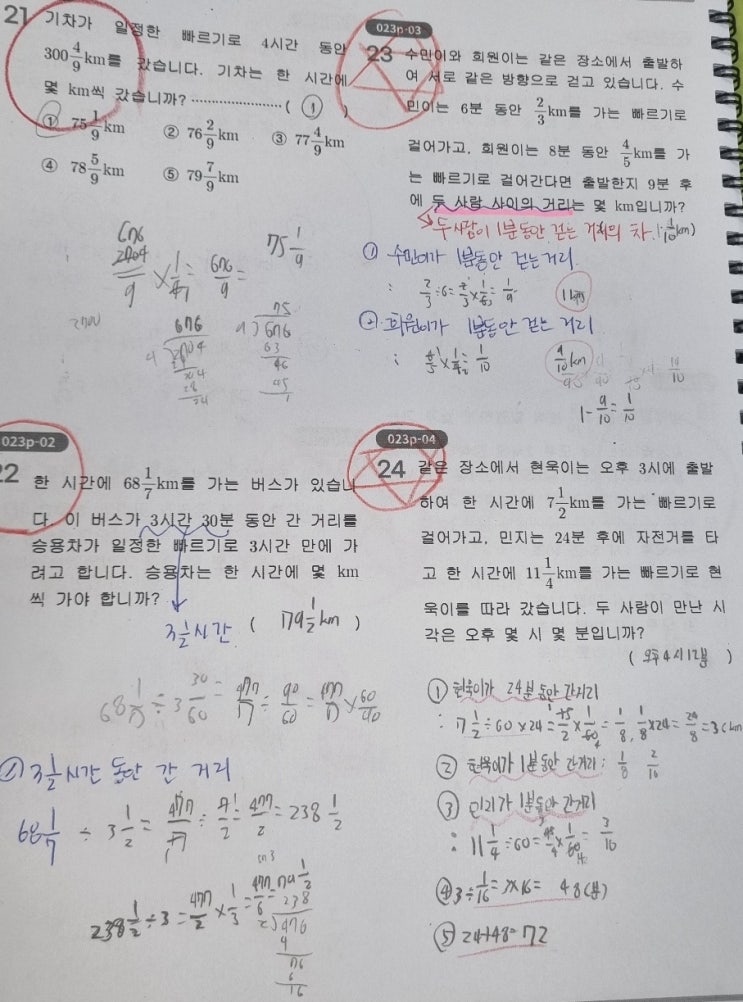 21 기차가 일정한 빠르기로 4시간 동안
300 4/9 km를 갔습니다. 기차는 한 시간에
몇 km씩 갔습니까? ( ① )
① 75 1/9 km ② 76 2/9 km ③ 77 4/9 km
④ 78 5/9 km ⑤ 79 7/9 km
75 1/9
676/9 =
676
75
9)676
63
46
45
1
023p-02
22 한 시간에 68 1/7 km를 가는 버스가 있습니
다. 이 버스가 3시간 30분 동안 간 거리를
승용차가 일정한 빠르기로 3시간 만에 가
려고 합니다. 승용차는 한 시간에 몇 km
씩 가야 합니까?
( 179 1/2 km )
3 1/2 시간
68 1/7 ÷ 3 30/60 = 477/7 ÷ 90/60 =
3 1/2 시간 동안 간 거리
68 1/7 ÷ 3 1/2 = 477/7 ÷ 7/2 = 477/2 = 238 1/2
238 1/2 ÷ 3 = 477/2 × 1/3 = 477/6 =
238
2)476
023p-03
23 수민이와 희원이는 같은 장소에서 출발하
여 서로 같은 방향으로 걷고 있습니다. 수
민이는 6분 동안 2/3 km를 가는 빠르기로
걸어가고, 희원이는 8분 동안 4/5 km를 가
는 빠르기로 걸어간다면 출발한지 9분 후
에 두 사람 사이의 거리는 몇 km입니까?
( 1/10 km )
두 사람이 1분동안 걷는 거리의 차
① 수민이가 1분동안 걷는 거리
: 2/3 ÷ 6 = 2/3 × 1/6 = 1/9
1km
② 희원이가 1분동안 걷는 거리
: 4/5 × 1/8 = 1/10
9/10 km
1 - 9/10 = 1/10
023p-04
24 같은 장소에서 현욱이는 오후 3시에 출발
하여 한 시간에 7 1/2 km를 가는 빠르기로
걸어가고, 민지는 24분 후에 자전거를 타
고 한 시간에 11 1/4 km를 가는 빠르기로 현
욱이를 따라 갔습니다. 두 사람이 만난 시
각은 오후 몇 시 몇 분입니까?
( 오후 4시 12분 )
① 현욱이가 24분 동안 간거리
: 7 1/2 ÷ 60 × 24 = 15/2 × 1/60 = 1/8, 1/8 × 24 = 24/8 = 3(km
② 현욱이가 1분동안 간거리 : 1/8 2/16
③ 민지가 1분동안 간거리
: 11 1/4 ÷ 60 = 45/4 × 1/60 = 3/16
④ 3 ÷ 1/16 = 3×16 = 48(분)
⑤ 24+48=72